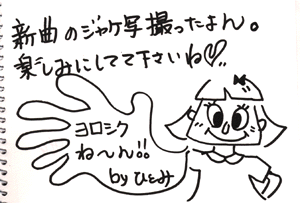 新曲のジャケ写撮ったよん。
楽しみにしてて下さいね♡
ヨロシク
ね〜ん!!
byひとみ